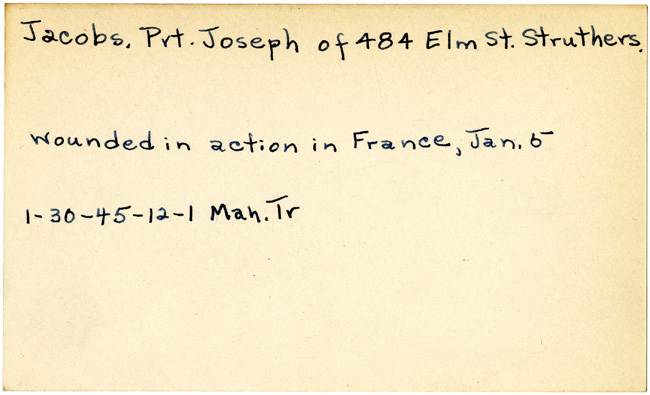 Jacobs, Pvt. Joseph of 484 Elm St. Struthers.
wounded in action in France, Jan. 5
1-30-45-12-1 Mah. Tr